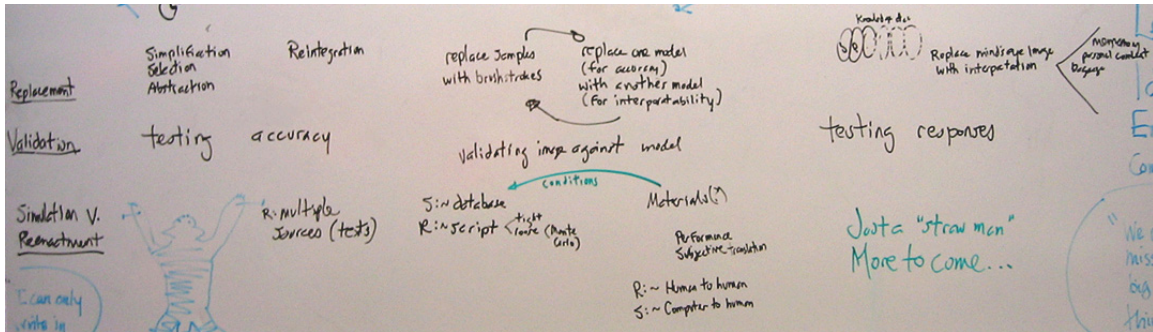 Simplification
Selection
Abstraction
Reintegration
replace samples
with brushstrokes
replace one model
(for accuracy)
with another model
(for interpretability)
Replace mindscape image
with interpretation
personal context
language
Replacement
Validation
testing accuracy
validating image against model
testing responses
conditions
Simulation V.
Reenactment
R: multiple
sources (texts)
S: ~ database
R: ~ script
tight
(Monte
Carlo)
Materials(?)
Performing
Subjective translation
R: ~ Human to human
S: ~ Computer to human
Just a "straw man"
More to come...
"I can only
write in
"We
miss
big